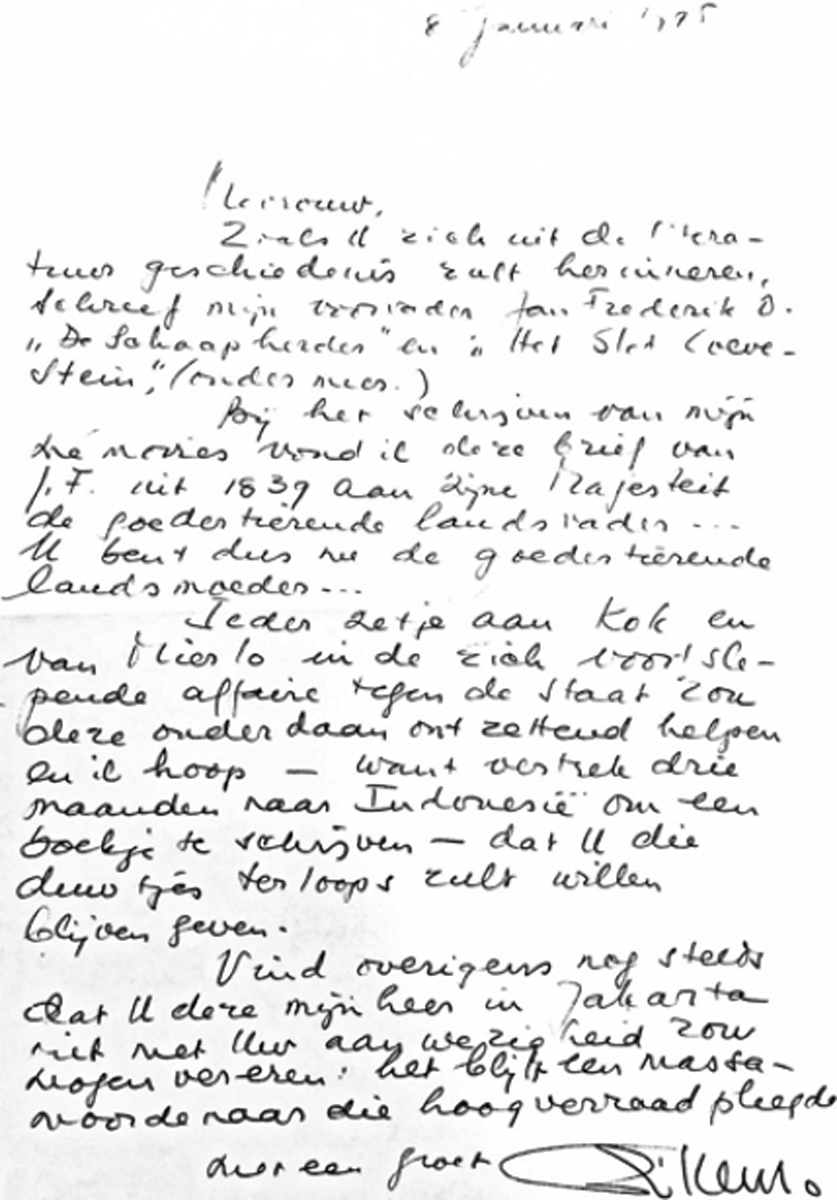 8 januari 1995
Mevrouw,
Zoals U zich uit de litera-
tuur geschiedenis zult herinneren,
schreef mijn voorvader Jan Frederik O.
"De Schaapherder" en "Het Slot Loeve-
stein", (onder meer.)
Bij het schrijven van mijn
mémoires vond ik deze brief van
J.F. uit 1839 aan Zijne Majesteit
de goedertierende landsvader ...
U bent dus nu de goedertierende
landsmoeder...
Ieder zetje aan Kok en
van Mierlo in de zich voortsle-
pende affaire tegen de Staat zou
deze onderdaan ontzettend helpen
en ik hoop — want vertrek drie
maanden naar Indonesië om een
boekje te schrijven — dat U die
duwtjes terloops zult willen
blijven geven.
Vind overigens nog steeds
dat U deze mijnheer in Jakarta
niet met Uw aanwezigheid zou
mogen vereren: het blijft een massa-
moordenaar die hoogverraad pleegde
met een groet